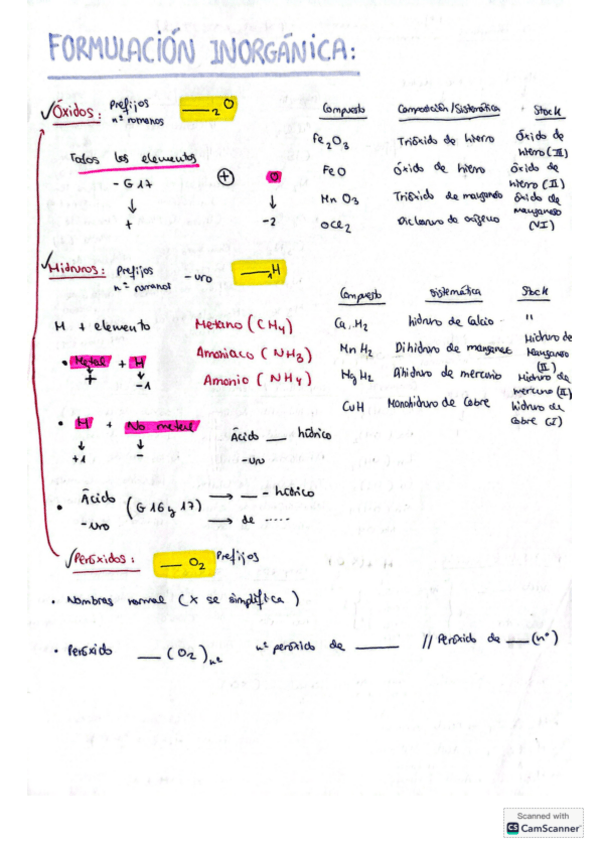 FORMULACIÓN INORGÁNICA:
✓Óxidos: Prefijos nº romanos ___₂O
Todos los elementos
- G17 ⊕ O
↓ ↓
+ -2
Compuesto Composición/Sistemática Stock
Fe₂O₃ Trióxido de hierro óxido de hierro (III)
FeO óxido de hierro óxido de hierro (II)
MnO₃ Trióxido de manganeso óxido de manganeso (VI)
OCl₂ Dicloruro de oxígeno
✓Hidruros: Prefijos nº romanos -uro ___₁H
H + elemento
Metano (CH₄)
Amoniaco (NH₃)
Amonio (NH₄)
• Metal + H
↓ ↓
+ -1
Compuesto Sistemática Stock
Ca H₂ hidruro de Calcio "
Mn H₂ Dihidruro de manganes Hidruro de Manganeso (II)
Hg H₂ Dihidruro de mercurio Hidruro de mercurio (II)
CuH Monohidruro de Cobre hidruro de Cobre (I)
• H + No metal Ácido ___ hídrico
↓ ↓ -uro
+1 -
• Ácido (G16 y 17) → __ - hídrico
-uro → de .....
✓Peróxidos: __ O₂ Prefijos
• Nombres normal (x se simplifica)
• Peróxido __(O₂)nº nº peróxido de ____ // Peróxido de __(nº)
Scanned with
CS CamScanner